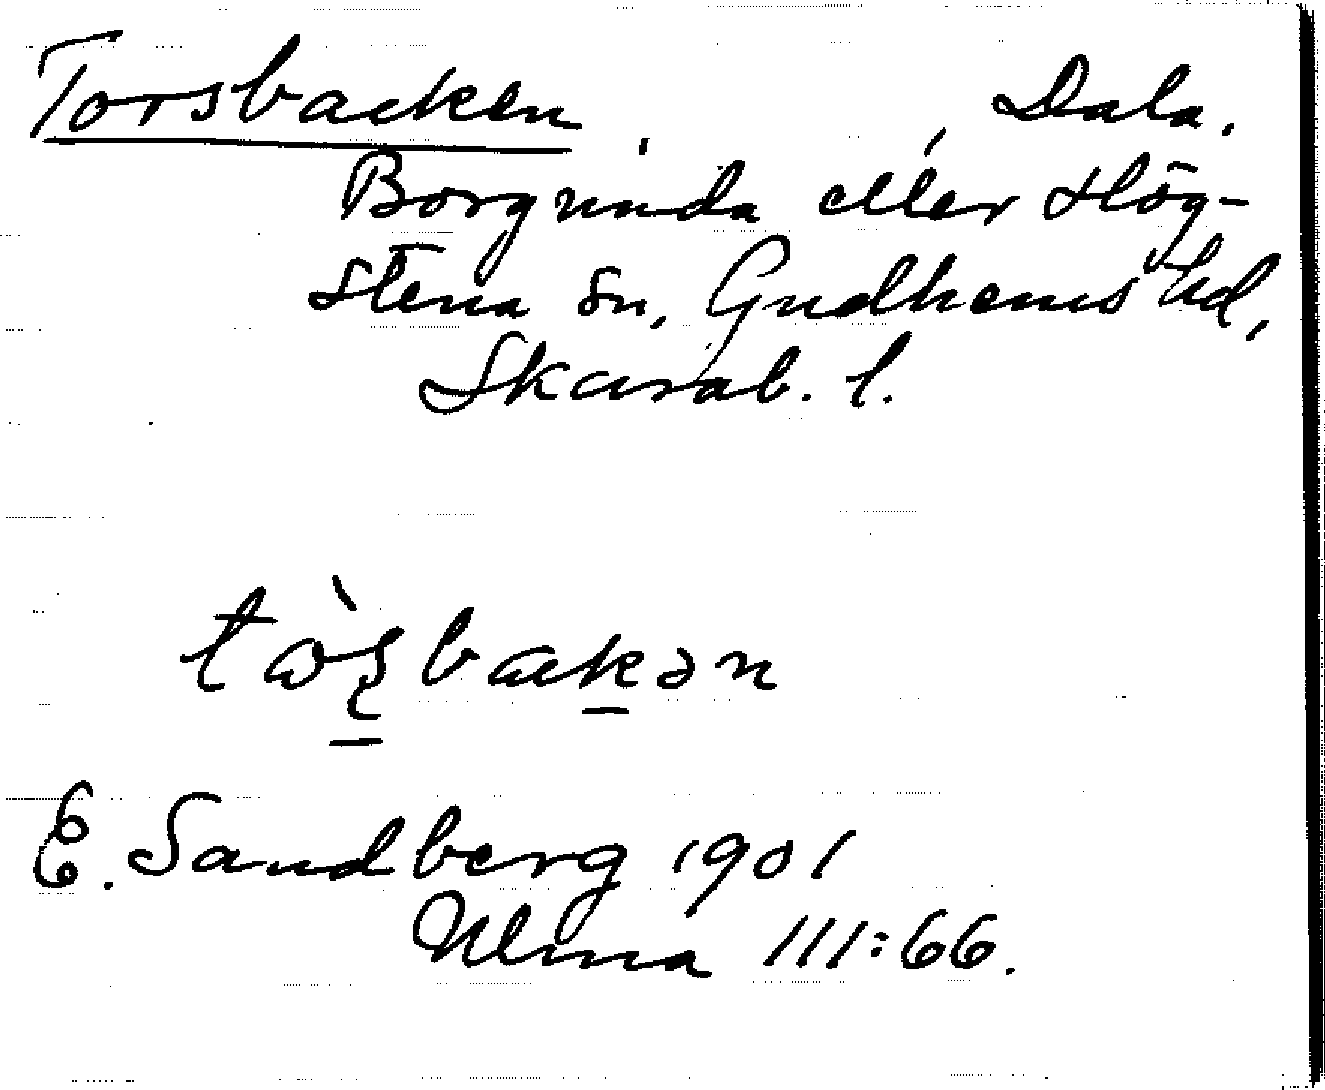 Torsbacken, , Dala,
Borgunda eller Hög-
stena sn, Gudhems hd,
Skarab. l.
tɷ̀ʂbakən
E. Sandberg 1901
Ulma 111:66.